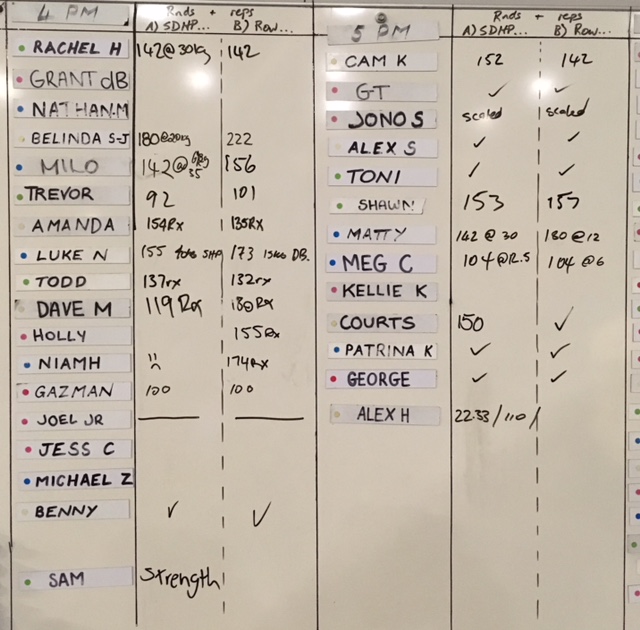 4 PM
Rnds + reps
A) SDHP... B) Row...
RACHEL H 142@30kg 142
GRANT dB
NATHAN.M
BELINDA S-J 180@20kg 222
MILO 142@ 35 156
TREVOR 92 101
AMANDA 154Rx 135Rx
LUKE N 155 173 DB.
TODD 137rx 132rx
DAVE M 119 Rx 180 Rx
HOLLY 155Rx
NIAMH 174RX
GAZMAN 100 100
JOEL JR
JESS C
MICHAEL Z
BENNY ✓ ✓
SAM Strength
5 PM
Rnds + reps
A) SDHP... B) Row...
CAM K 152 142
GT ✓ ✓
JONO S scaled scaled
ALEX S ✓ ✓
TONI ✓ ✓
SHAWN 153
MATTY 142 @ 30 180 @ 12
MEG C 104 104 @ 6
KELLIE K
COURTS 150 ✓
PATRINA K ✓ ✓
GEORGE ✓ ✓
ALEX H 22.33 / 110 /